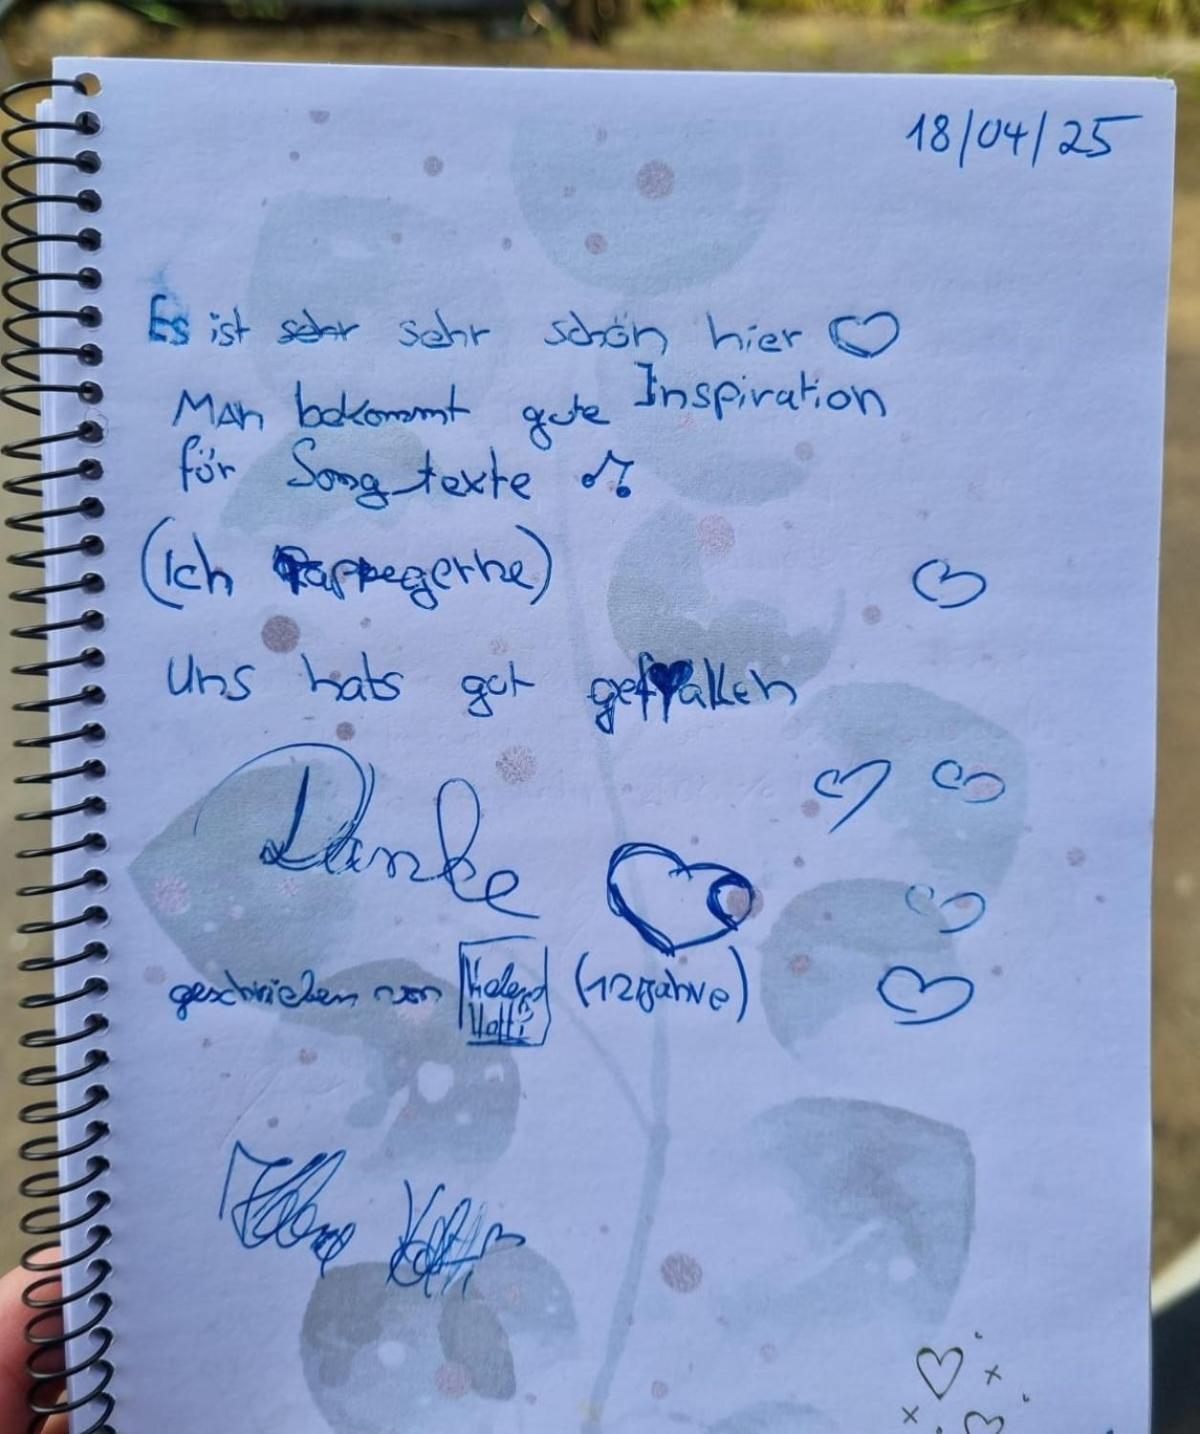 18/04/25
Es ist sehr sehr schön hier
Man bekommt gute Inspiration
für Song texte
(Ich Rappegerne)
Uns hats gut gefallen
Danke
geschrieben von
(12 Jahre)